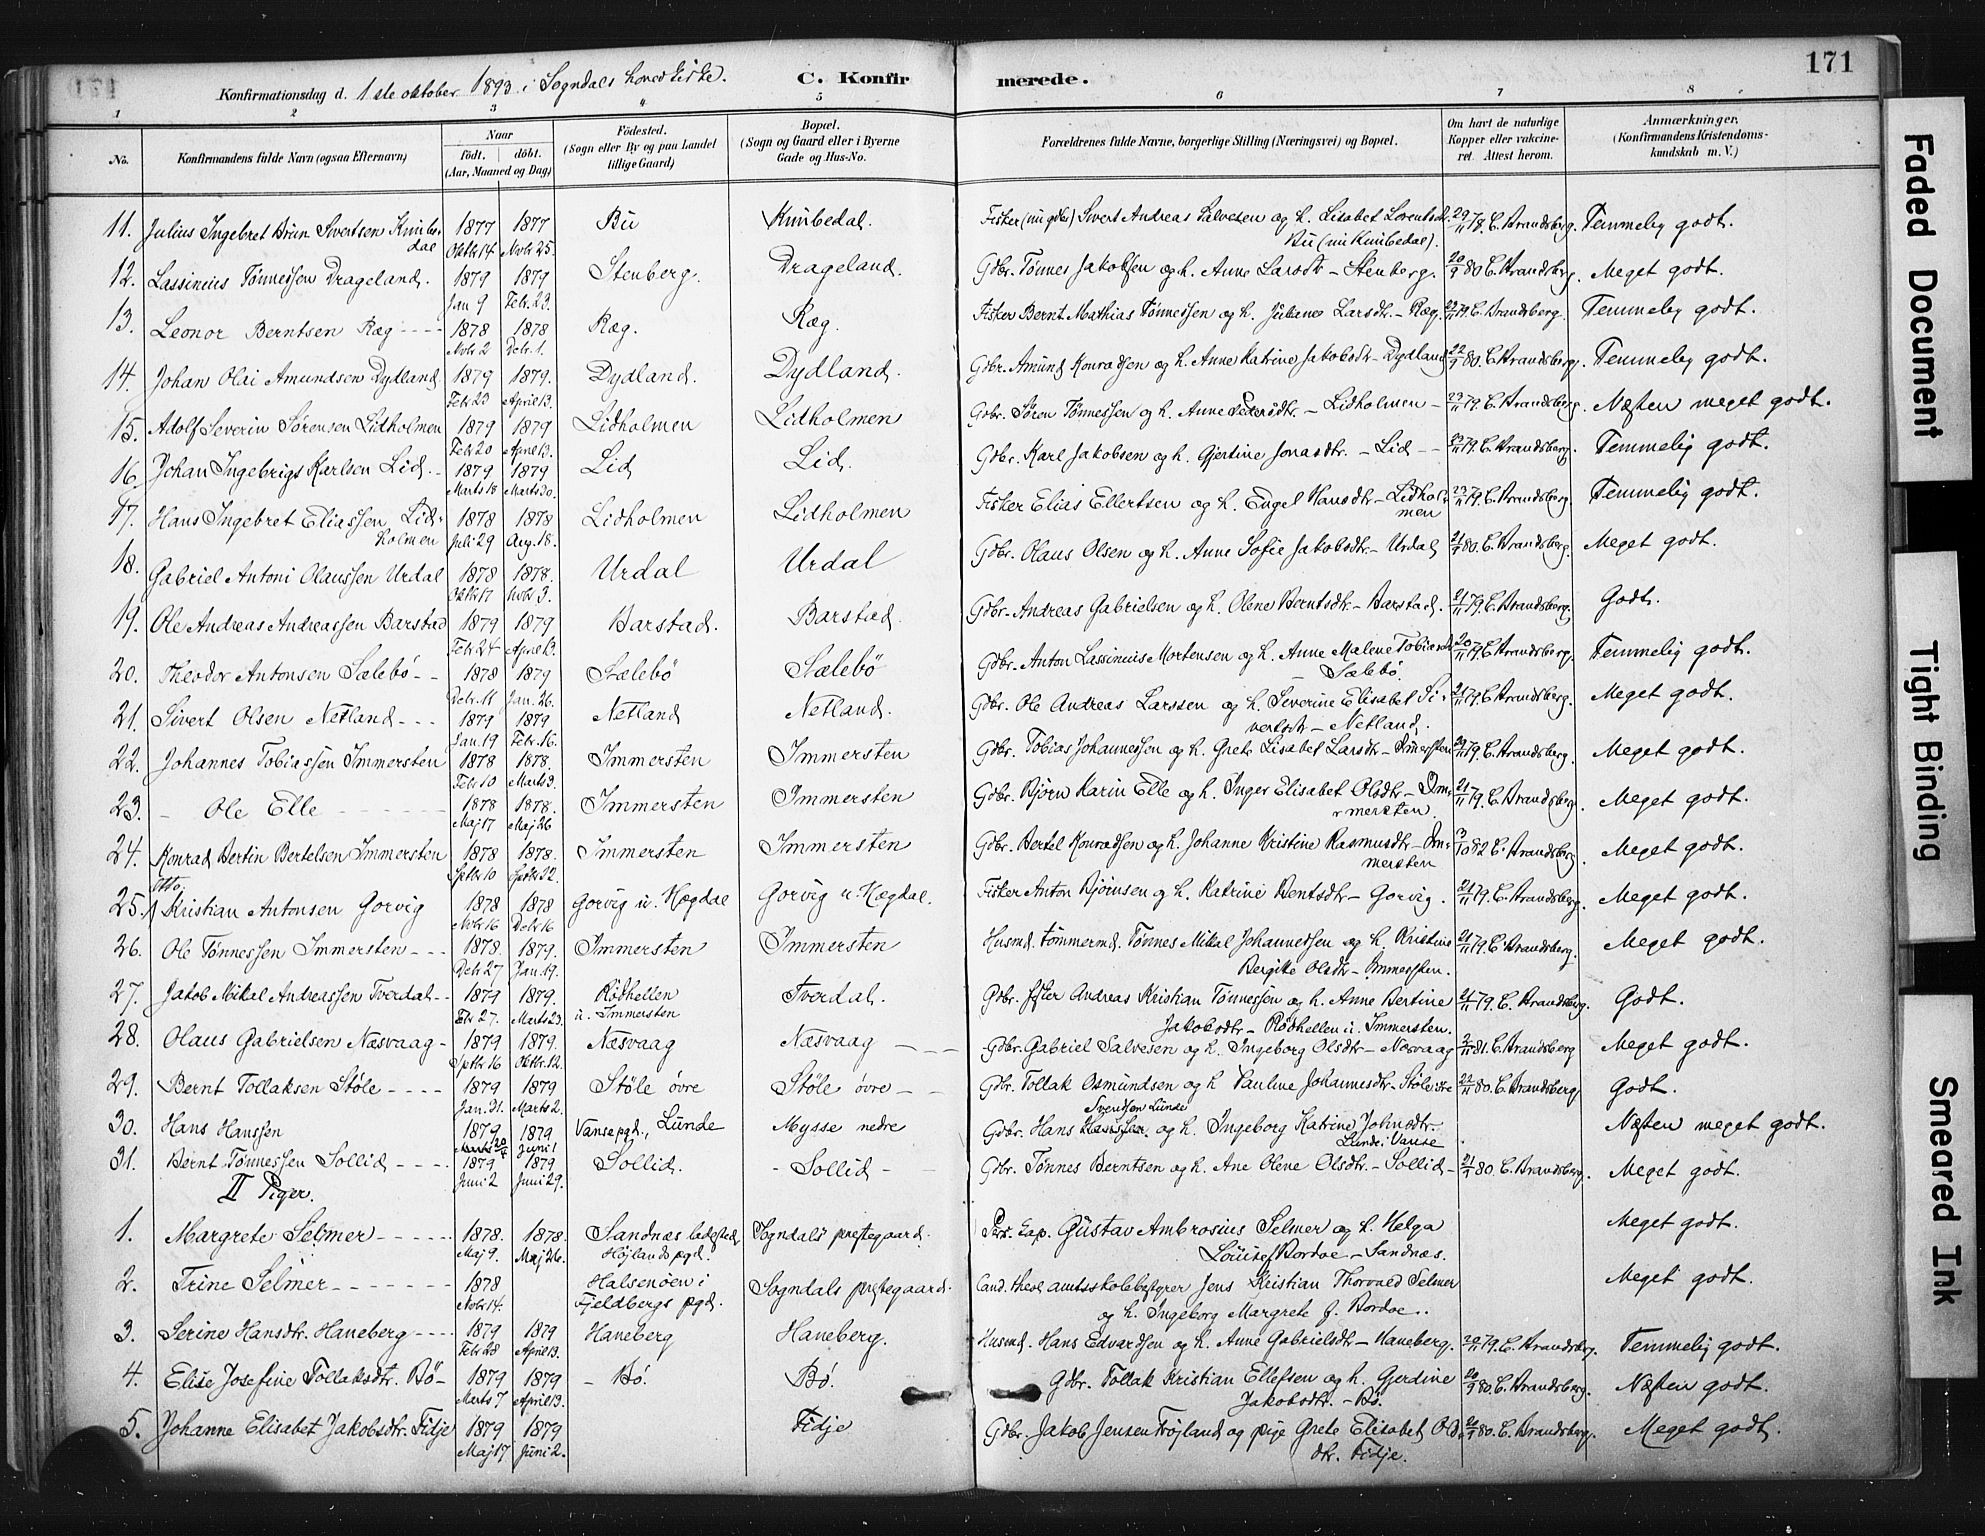 171
Konfirmationsdag d. 1ste oktober 1893 i Sogndals hovedkirke. C. Konfirmerede.
1 2 3 4 5 6 7 8
No. Konfirmandens fulde Navn (ogsaa Efternavn) Naar født. døbt. (Aar, Maaned og Dag) Fødested. (Sogn eller By og paa Landet tillige Gaard) Bopæl. (Sogn og Gaard eller i Byerne Gade og Hus-No. Forældrenes fulde Navne, borgerlige Stilling (Næringsvei) og Bopæl. Om havt de naturlige Kopper eller vakcineret. Attest herom. Anmærkninger. (Konfirmandens Kristendomskundskab m. V.)
11. Julius Ingebret Brun Sivertsen Knibedal 1877 Oktbr 14 1877 Novbr 25. Bu Knibedal. Fisker (nu gdbr) Sivert Andreas Salvesen og h. Lisabet Lorentsdtr. Bu (nu Knibedal). 29/11 78. C. Brandsberg. Temmelig godt.
12. Lassinius Tønnessen Drageland. 1879 Jan 9 1879 Febr. 23. Stenberg. Drageland. Gdbr. Tønnes Jakobsen og h. Anne Larsdtr – Stenberg. 20/9 80 C. Brandsberg. Meget godt.
13. Leonor Berntsen Ræg 1878 Novbr 2 1878 Debr. 1. Ræg. Ræg. Fisker Bernt Mathias Tønnessen og h. Juliane Larsdtr. – Ræg. 23/11 79. C. Brandsberg. Temmelig godt.
14. Johan Olai Amundsen Dydland. 1879 Febr 23 1879. April 13. Dydland. Dydland. Gdbr. Amund Konradsen og h. Anne Katrine Jakobsdtr – Dydland 22/9 80. C. Brandsberg. Temmelig godt.
15. Adolf Severin Sørensen Lidholmen 1879 Febr 20 1879 April 13. Lidholmen Lidholmen Gdbr. Søren Tønnessen og h. Anne Pedersdtr. – Lidholmen – 23/11 79. C. Brandsberg. Næsten meget godt.
16. Johan Ingebrigt Karlsen Lid. 1879 Marts 18 1879 Marts 30. Lid Lid. Gdbr. Karl Jakobsen og h. Gjertine Jonasdtr. – Lid – 23/11 79. C. Brandsberg. Temmelig godt.
17. Hans Ingebret Eliassen Lidholmen 1878 Juli 29 1878 Aug. 18. Lidholmen Lidholmen Fisker Elias Ellertsen og h. Engel Hansdtr – Lidholmen 23/11 79. C. Brandsberg. Temmelig godt.
18. Gabriel Antoni Olaussen Urdal 1878 Oktbr 17 1878. Novbr 3. Urdal Urdal Gdbr. Olaus Olsen og h. Anne Sofie Jakobsdtr. – Urdal 21/9 80. C. Brandsberg. Meget godt.
19. Ole Andreas Andreassen Barstad 1879 Febr 24 1879 April 13. Barstad. Barstad. Gdbr. Andreas Gabrielsen og h. Olene Berntsdtr. – Barstad. 21/11 79. C. Brandsberg. Godt.
20. Theodor Antonsen Sælebö 1878 Debr. 11 1879 Jan. 26. Sælebö Sælebö Gdbr. Anton Lassinius Mortensen og h. Anne Malene Tobiasdtr Sælebö. 20/11 79. C. Brandsberg. Temmelig godt.
21. Sivert Olsen Netland 1879 Jan. 19 1879 Febr. 16. Netland Netland. Gdbr. Ole Andreas Larssen og h. Severine Elisabet Sivertsdtr – Netland. 21/11 79. C. Brandsberg. Meget godt.
22. Johannes Tobiassen Immersten 1878 Febr 10 1878. Marts 3. Immersten Immersten Gdbr. Tobias Johannessen og h. Grete Lisabet Larsdtr – Immersten 20/11 79. C. Brandsberg. Meget godt.
23. Ole Elle 1878 Maj 17 1878. Maj 26 Immersten Immersten Gdbr. Bjørn Karin Elle og h. Inger Elisabet Olsdtr – Immersten. 21/11 79. C. Brandsberg. Meget godt.
24. Konrad Bertin Bertelsen Immersten 1878 Sptbr 10 1878. Sptbr 22. Immersten Immersten Gdbr. Bertel Konradsen og h. Johanne Kristine Rasmusdtr – Immersten 9/10 82 C. Brandsberg. Meget godt.
25. Otto Kristian Antonsen Gorvig 1878 Novbr 16 1878 Debr 16 Gorvig u. Hægdal Gorvig u. Hægdal. Fisker Anton Bjørnsen og h. Katrine Bentsdtr – Gorvig. 21/11 79. C. Brandsberg. Meget godt.
26. Ole Tønnessen Immersten 1878. Debr 27 1879. Jan. 19. Immersten Immersten Husmd. tømmermd. Tønnes Mikal Johannessen og h. Kristine Bergitte Olsdtr – Immersten. 21/11 79. C. Brandsberg. Meget godt.
27. Jakob Mikal Andreassen Tverdal 1879 Febr 27. 1879. Marts 23. Rödhellen u. Immersten Tverdal. Gdbr. Andreas Kristian Tønnessen og h. Anne Bertine Jakobsdtr – Rödhellen u. Immersten. 21/11 79. C. Brandsberg. Godt.
28. Olaus Gabrielsen Næsvaag 1879 Sptbr 16 1879. Oktbr. 12. Næsvaag Næsvaag Gdbr. Gabriel Salvesen og h. Ingeborg Olsdtr – Næsvaag 2/11 81. C. Brandsberg Meget godt.
29. Bernt Tollaksen Støle 1879 Jan. 31. 1879 Marts 2. Støle övre Støle övre Gdbr. Tollak Osmundsen og h Pauline Johannesdtr – Støle övre 22/11 80. C. Brandsberg Godt.
30. Hans Hanssen 1879 Marts 20/4 1879 Juni 1 Vanse pgd., Lunde Mysse nedre Gdbr. Hans Hanssen Svendsen Lunde og h. Ingeborg Katrine Johnsdtr. Lunde i Vanse Næsten meget godt.
31. Bernt Tønnessen Sollid 1879 Juni 2 1879 Juni 29. Sollid. Sollid Gdbr. Tønnes Berntsen og h. Ane Olene Olsdtr. – Sollid 21/9 80. C. Brandsberg. Meget godt.
II Piger.
1. Margrete Selmer 1878. Maj 9. 1878. Maj 26. Sandnæs ladested Höjlands pgd. Sogndals prestegaard. Pers. Cap. Gustav Ambrosius Selmer og h. Helga Louise Bordoe – Sandnæs. Meget godt.
2. Trine Selmer 1878 Novbr 14. Halsenöen i Fjeldbergs pgd. Sogndals prestegaard. Cand. theol. amtsskolebestyrer Jens Kristian Thorvald Selmer og h. Ingeborg Margrete J. Bordoe. Meget godt.
3. Serine Hansdtr. Haneberg 1879 Febr 28 1879 April 13. Haneberg Haneberg. Husmd. Hans Edvardsen og h. Anne Gabrielsdtr – Haneberg. 20/11 79. C. Brandsberg. Temmelig godt.
4. Elise Josefine Tollaksdtr. Bö 1879 Marts 7 1879 April 13. Bö. Bö. Gdbr. Tollak Kristian Ellefsen og h. Gjerdine Jakobsdtr. – Bö. 20/9 80. C. Brandsberg. Næsten godt.
5. Johanne Elisabet Jakobsdtr. Tidje 1879 Maj 17 1879 Juni 2. Tidje Gdbr. Jakob Jensen Frøjland og pige Grete Elisabet Olsdtr. Tidje. 20/9 80. C. Brandsberg. Meget godt.
Faded Document
Tight Binding
Smeared Ink